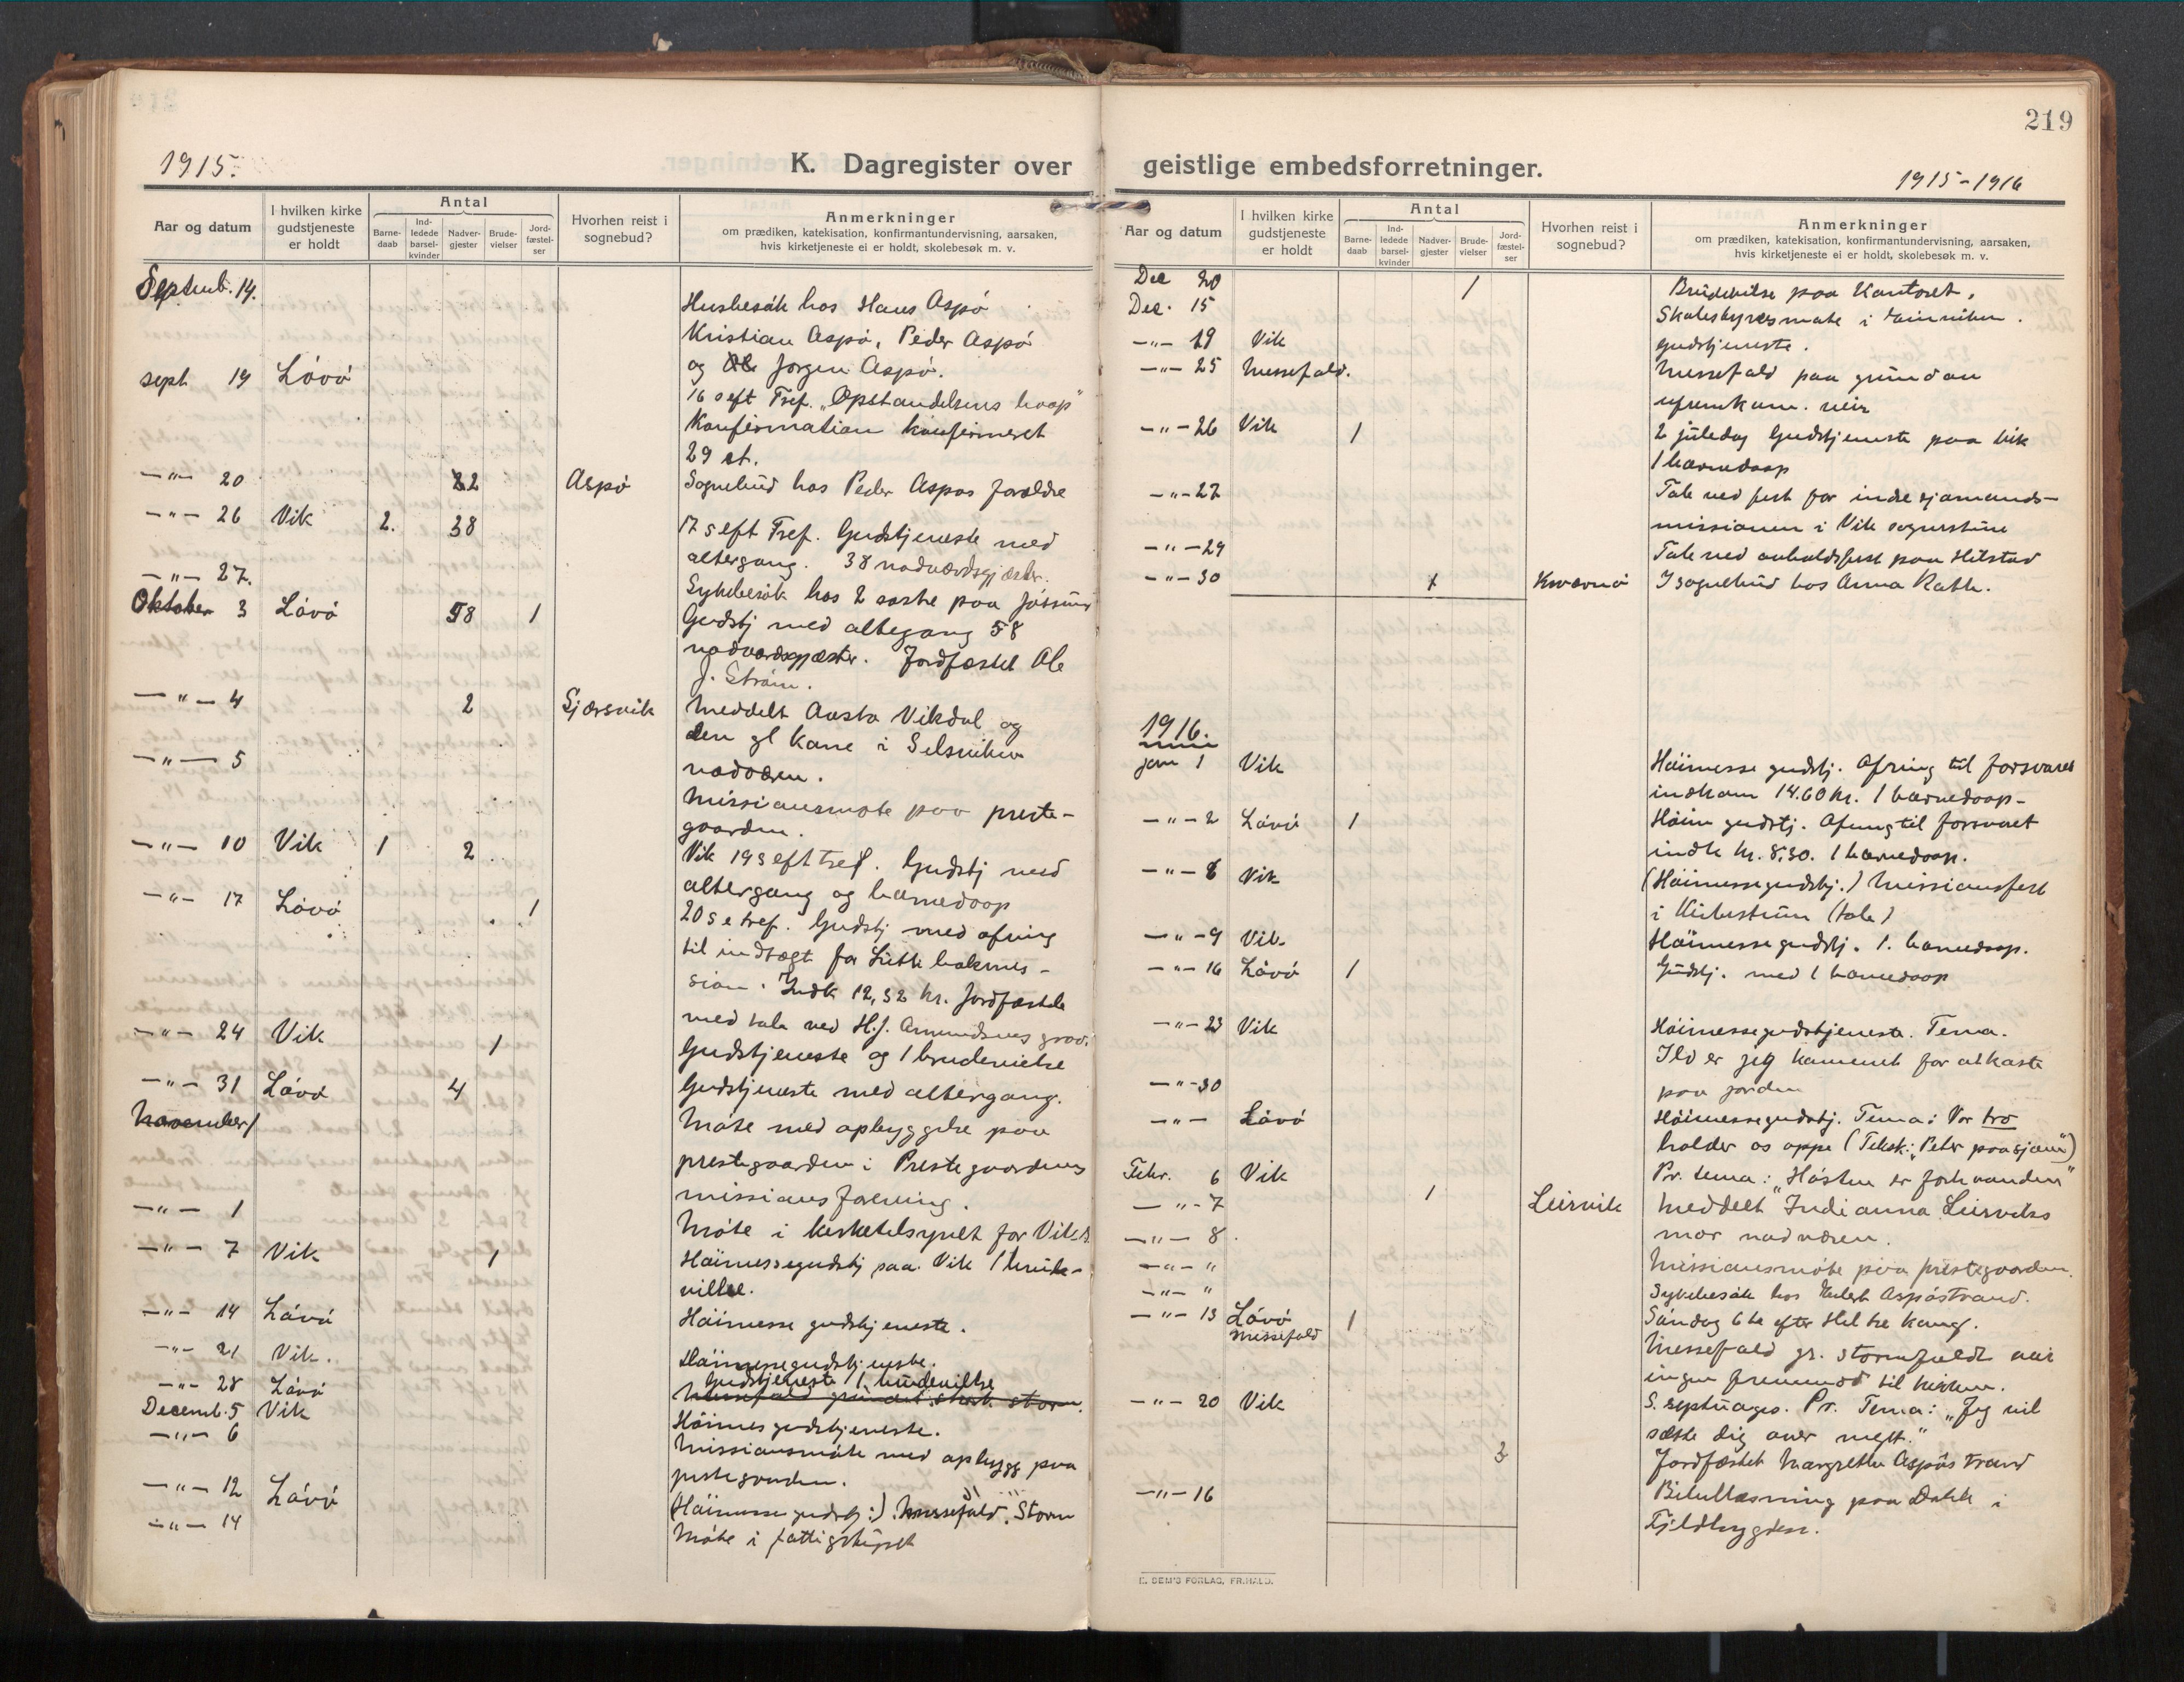 219
1915.
K. Dagregister over
Aar og datum
I hvilken kirke gudstjeneste er holdt
Antal
Barne-daab
Ind-ledede barsel-kvinder
Nadver-gjester
Brude-vielser
Jord-fæstel-ser
Hvorhen reist i sognebud?
Anmerkninger
om prædiken, katekisation, konfirmantundervisning, aarsaken,
hvis kirketjeneste ei er holdt, skolebesøk m. v.
Septemb. 14.
Husbesøk hos Hans Aspø
Kristian Aspø, Peder Aspø
og Jørgen Aspø.
sept 19 Løvø
16 s eft Tref. "Opstandelsens haap"
Konfirmation konfirmeret
29 st.
-"- 20 2 Aspø Sognebud hos Peder Aspøs forældre
-"- 26 Vik 2. 38 17 s eft Tref. Gudstjeneste med
altergang. 38 nadverdsgjæster.
-"- 27. Sykebesøk hos 2 søstre paa Jøssund
Oktober 3 Løvø 58 1 Gudstj med altegang 58
nadverdsgjæster. Jordfæstet Ole
J. Strøm.
-"- 4 2 Sjærsvik Meddelt Aasta Vikdal og
den gl Kone i Selsviken
nadveren.
-"- 5 Missionsmøte paa preste-
gaarden.
-"- 10 Vik 1 2 Vik 19 s eft tref. Gudstj med
altergang og barnedaap
-"- 17 Løvø 1 20 s e tref. Gudstj med ofring
til indtægt for Sütti bakmis-
sion. Indk 12,32 kr. Jordfæstele
med tale ved H.J. Amundsens grav.
-"- 24 Vik 1 Gudstjeneste og 1 brudevielse
-"- 31 Løvø 4 Gudstjeneste med altergang.
November 1 Møte med opbyggelse paa
prestegaarden i Prestegaardens
missionsforening.
-"- 1 Møte i kirketilsynet for Vik s.
-"- 7 Vik 1 Høimessegudstj paa Vik 1 brude-
vielse.
-"- 14 Løvø Høimesse gudstjeneste.
-"- 21 Vik. Høimessegudstjeneste.
-"- 28 Løvø Gudstjeneste 1 brudevielse
Messefald grundet sterk storm.
Decemb. 5 Vik Høimes gudstjeneste.
-"- 6 Missionsmøte med opbygg paa
prestegaarden.
-"- 12 Løvø (Høimesse gudstj:) Messefald. Storm
-"- 14 Møte i fattigstyret
geistlige embedsforretninger.
1915-1916
Aar og datum
I hvilken kirke gudstjeneste er holdt
Antal
Barne-daab
Ind-ledede barsel-kvinder
Nadver-gjester
Brude-vielser
Jord-fæstel-ser
Hvorhen reist i sognebud?
Anmerkninger
om prædiken, katekisation, konfirmantundervisning, aarsaken,
hvis kirketjeneste ei er holdt, skolebesøk m. v.
Dec 20 1 Brudevielse paa Kontoret.
Dec. 15 Skolestyresmøte i
-"- 19 Vik gudstjeneste.
-"- 25 Messefald. Messefald paa grund av
ufremkom. veir
-"- 26 Vik 1 2 juledag Gudstjeneste paa Vik
1 barnedaap
-"- 27 Tale ved fest for indre sjømands-
missionen i Vik sognestue
-"- 29 Tale ved avholdsfest paa Hilstad
-"- 30 1 Kværnø I sognebud hos Anna Kath.
1916.
jan 1 Vik Høimesse gudstj. Ofring til forsvaret
indkom 14.60 kr. 1 barnedaap-
-"- 2 Løvø 1 Høim gudstj. Ofring til forsvaret
indk kr. 8,30. 1 barnedaap.
-"- 8 Vik (Høimessegudstj.) Missionsfest
i (tale)
-"- 9 Vik. Høimessegudstj. 1. barnedaap.
-"- 16 Løvø 1 Gudstj. med 1 barnedaap
-"- 23 Vik Høimessegudstjeneste. Tema.
Ild er jeg kommet for at kaste
paa jorden
-"- 30
-"- Løvø Høimessegudstj. Tema: Vor tro
holder os oppe (Tekst: "Peter paa sjøen")
Febr. 6 Vik Pr. tema: "Høsten er forhaanden"
-"- 7 1 Leirvik Meddelt Indianna Leirviks
mor nadveren.
-"- 8
-"- " Missionsmøte paa prestegaarden.
-"- " Sykebesøk hos Aspøstrand.
-"- 13 Løvø 1 Søndag 6te efter Hel tre kong.
Messefald Messefald gr. stormfuldt veir
ingen fremmød til kirken.
-"- 20 Vik S. septuages. Pr. Tema: "Jeg vil
sætte dig over meget."
2 Jordfæstet Margrethe Aspøstrand
-"- 16 Bibellæsning paa Dahle i
Fjeldbygden.
E. SEM'S FORLAG, FR.HALD.